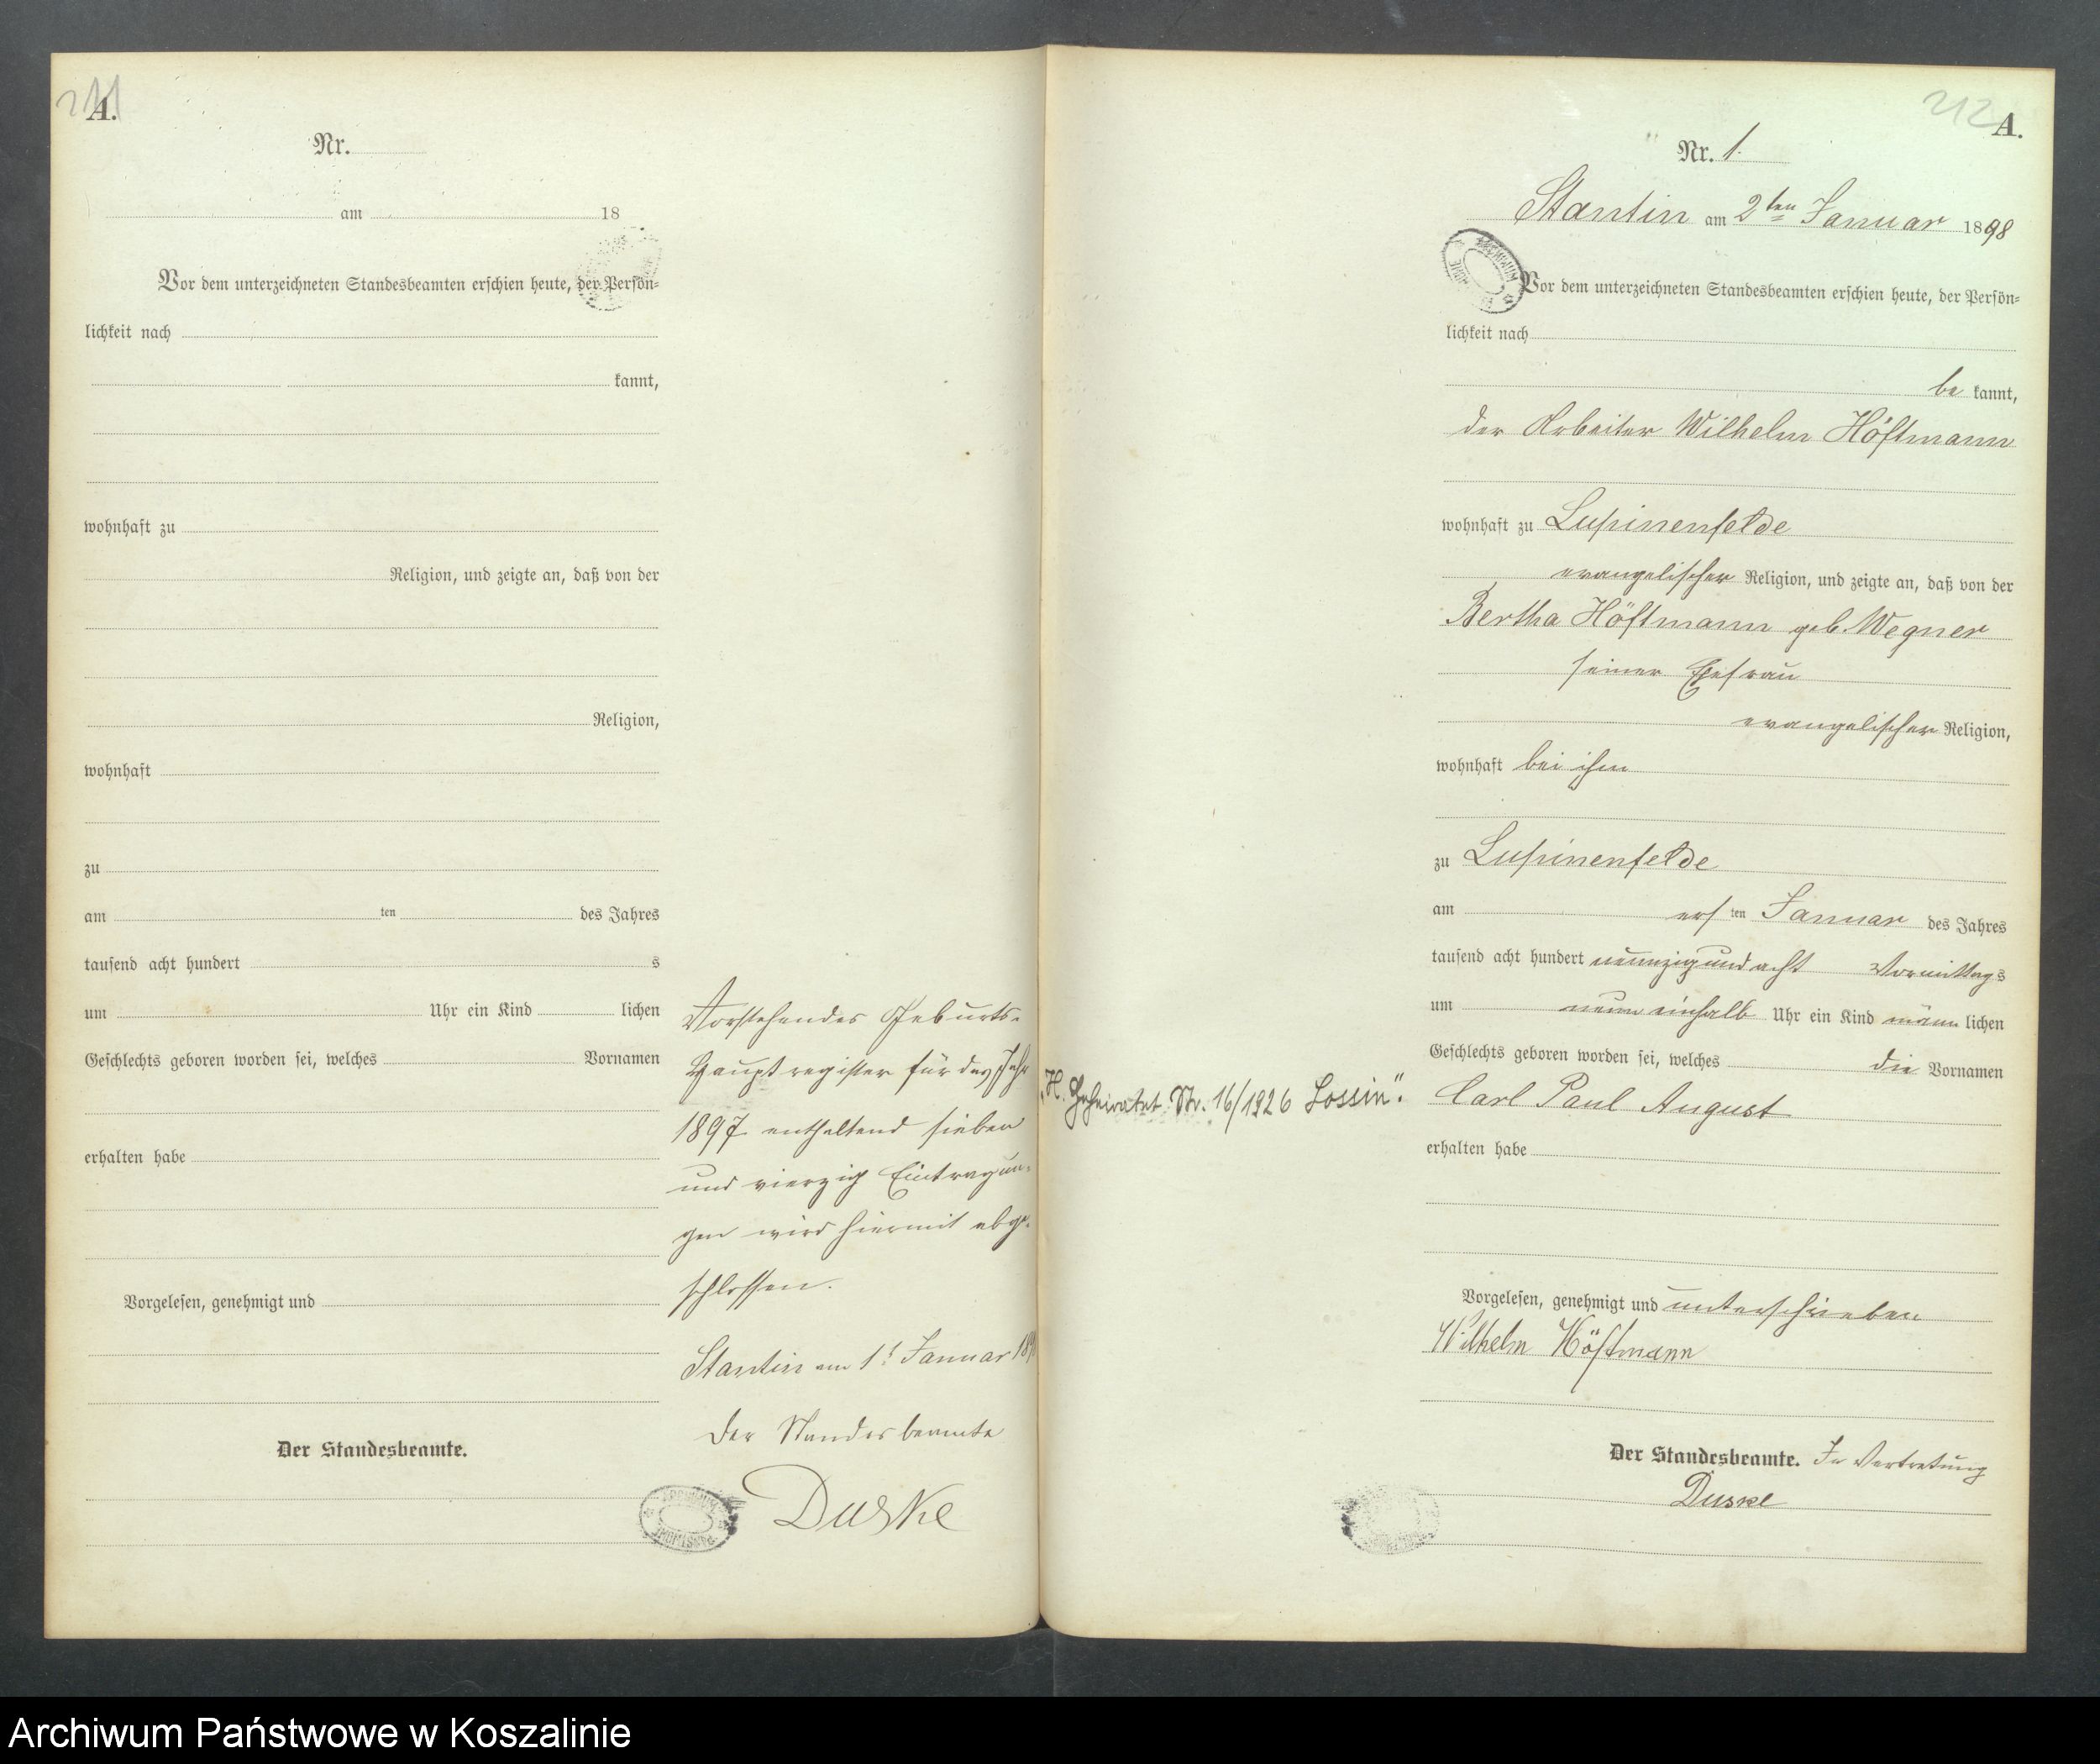 211
A.
Nr.
am 18
Vor dem unterzeichneten Standesbeamten erschien heute, der Persön=
lichkeit nach
kannt,
wohnhaft zu
Religion, und zeigte an, daß von der
Religion,
wohnhaft
zu
am ten des Jahres
tausend acht hundert s
um Uhr ein Kind lichen
Geschlechts geboren worden sei, welches Vornamen
erhalten habe
Vorgelesen, genehmigt und
Der Standesbeamte.
Vorstehendes Geburts-
Hauptregister für das Jahr
1897 enthaltend sieben
und vierzig Eintragun-
gen wird hiermit abge-
schlossen.
Stantin am 1t Januar 189
Der Standesbeamte
Duske
212
A.
Nr. 1.
Stantin am 2ten Januar 1898
Vor dem unterzeichneten Standesbeamten erschien heute, der Persön=
lichkeit nach
be kannt,
der Arbeiter Wilhelm Höftmann
wohnhaft zu Lupinenfelde
evangelischer Religion, und zeigte an, daß von der
Bertha Höftmann geb. Wegner
seiner Ehefrau
evangelischer Religion,
wohnhaft bei ihm
zu Lupinenfelde
am ers ten Januar des Jahres
tausend acht hundert neunzig und acht Vormittags
um neun einhalb Uhr ein Kind männ lichen
Geschlechts geboren worden sei, welches die Vornamen
Carl Paul August
erhalten habe
"H. Geheiratet Nr. 16/1926 Lossin".
Vorgelesen, genehmigt und unterschrieben
Wilhelm Höftmann
Der Standesbeamte. In Vertretung
Duske
Archiwum Państwowe w Koszalinie